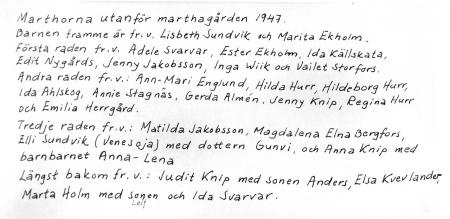 Marthorna utanför marthagården 1947.
Barnen framme är fr.v. Lisbeth Sundvik och Marita Ekholm.
Första raden fr.v. Adele Svarvar, Ester Ekholm, Ida Källskata,
Edit Nygårds, Jenny Jakobsson, Inga Wiik och Vailet Storfors.
Andra raden fr.v.: Ann-Mari Englund, Hilda Hurr, Hildeborg Hurr,
Ida Ahlskog, Annie Stagnäs, Gerda Almén, Jenny Knip, Regina Hurr
och Emilia Herrgård.
Tredje raden fr.v.: Matilda Jakobsson, Magdalena Elna Bergfors,
Elli Sundvik (Venesoja) med dottern Gunvi, och Anna Knip med
barnbarnet Anna-Lena
Längst bakom fr.v.: Judit Knip med sonen Anders, Elsa Kuevlander,
Marta Holm med sonen och Ida Svarvar.
Leif